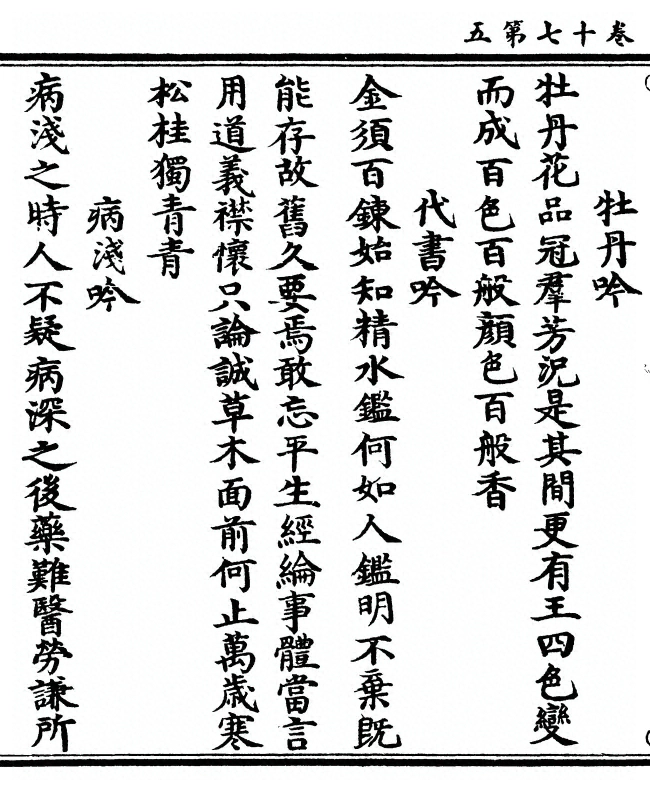 卷十七第五
牡丹吟
牡丹花品冠羣芳況是其間更有王四色變
而成百色百般顏色百般香
代書吟
金須百鍊始知精水鑑何如人鑑明不棄既
能存故舊久要焉敢忘平生經綸事體當言
用道義襟懷只論誠草木面前何止萬歲寒
松桂獨青青
病淺吟
病淺之時人不疑病深之後藥難醫勞謙所